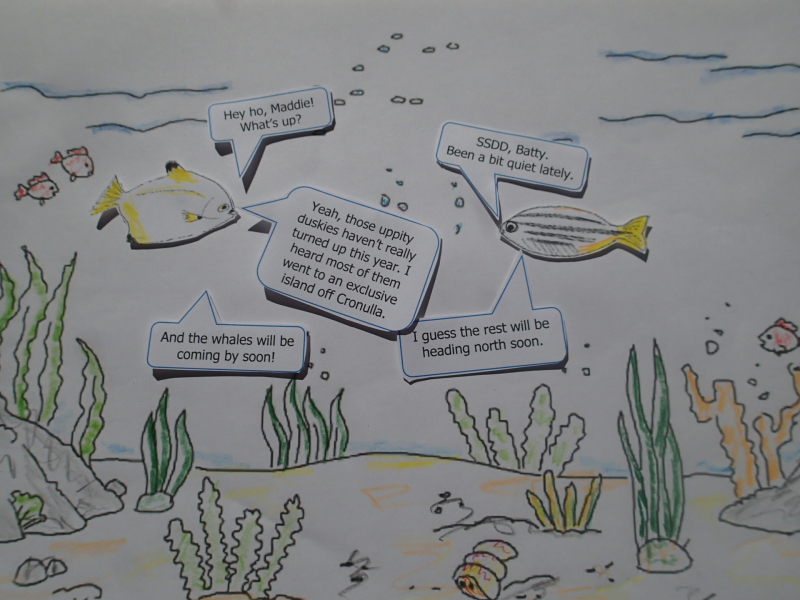 Hey ho, Maddie!
What's up?
SSDD, Batty.
Been a bit quiet lately.
Yeah, those uppity
duskies haven't really
turned up this year. I
heard most of them
went to an exclusive
island off Cronulla.
I guess the rest will be
heading north soon.
And the whales will be
coming by soon!